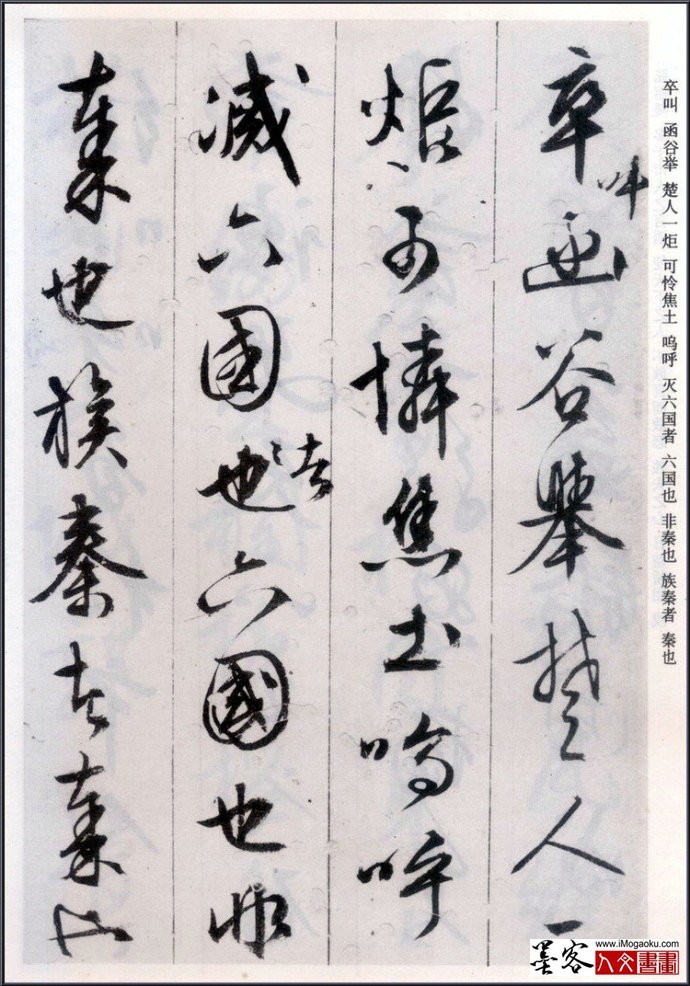 卒叫 函谷举 楚人一炬 可怜焦土 呜呼 灭六国者 六国也 非秦也 族秦者 秦也
卒叫函谷舉楚人一
炬可憐焦土嗚呼
滅六國也者六國也非
秦也族秦者秦也
www.iMogaoku.com
墨客人文書畫